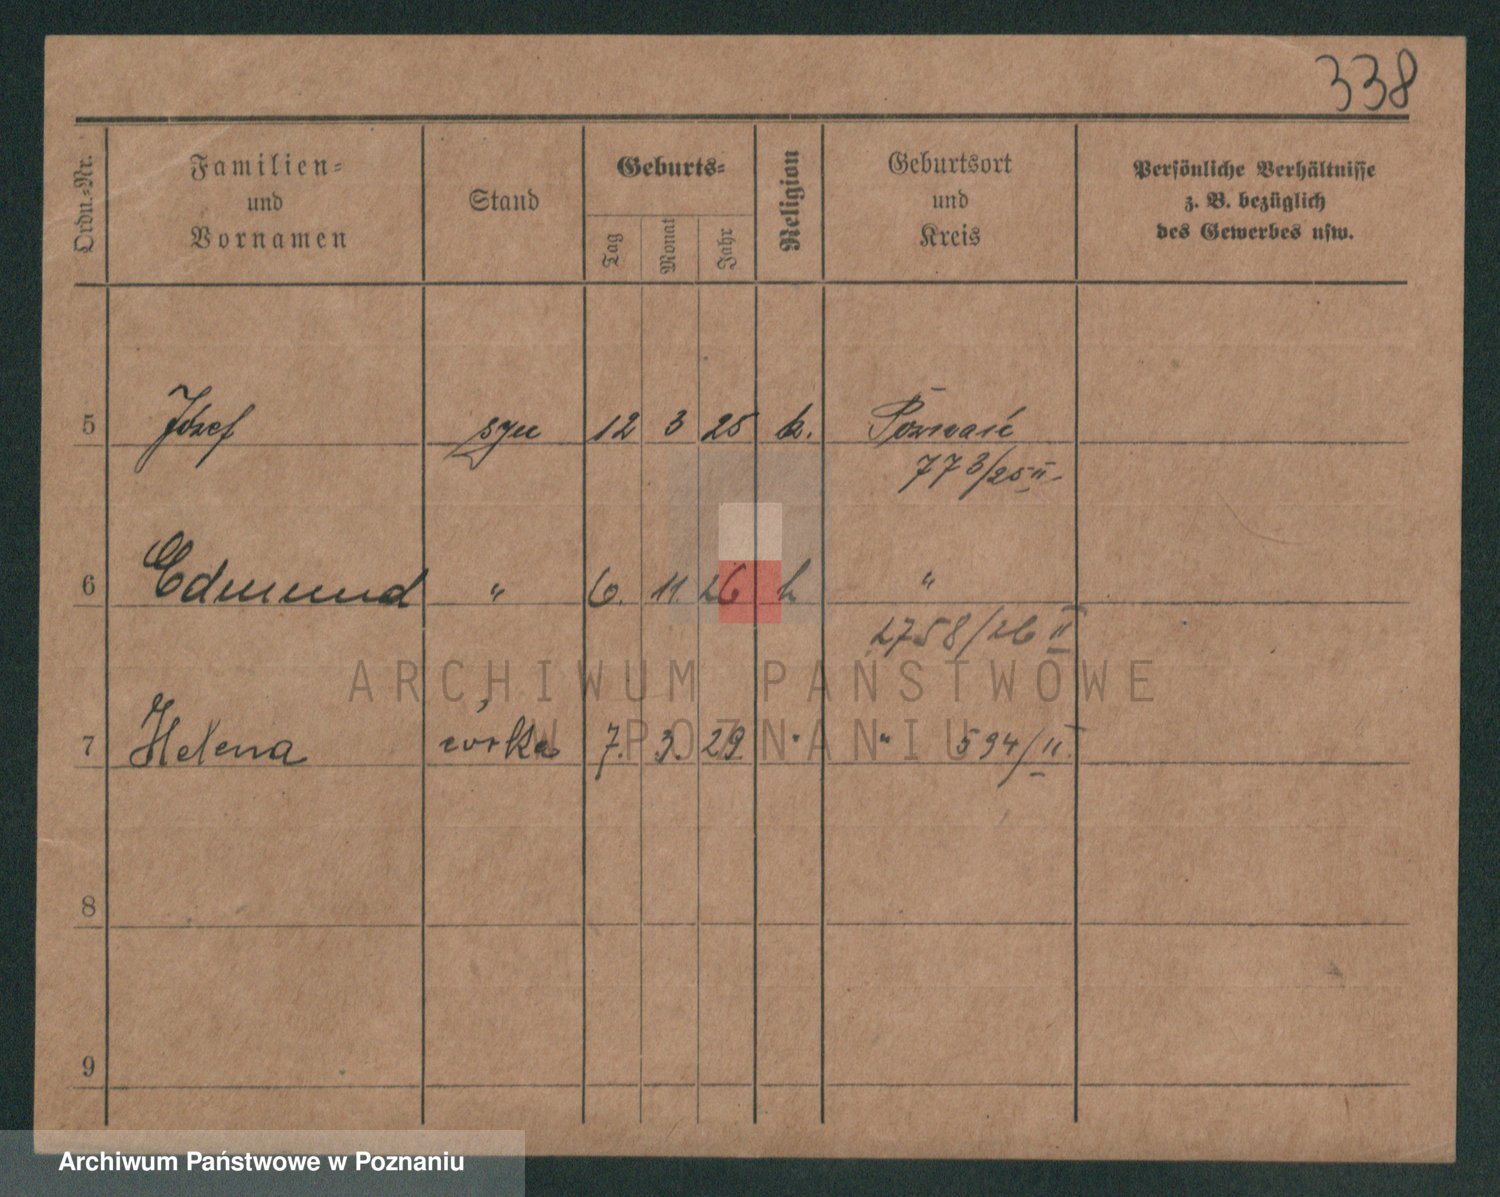 338
Ordn.-Nr.
Familien-
und
Vornamen
Stand
Geburts-
Tag
Monat
Jahr
Religion
Geburtsort
und
Kreis
Persönliche Verhältnisse
z. B. bezüglich
des Gewerbes usw.
5 Józef syn 12 3 25 k. Poznań
773/25 II
6 Edmund " 6. 11. 26 k "
2758/26 II
7 Helena córka 7. 3. 29 " " 594/II
8
9
ARCHIWUM PAŃSTWOWE
W POZNANIU
Archiwum Państwowe w Poznaniu